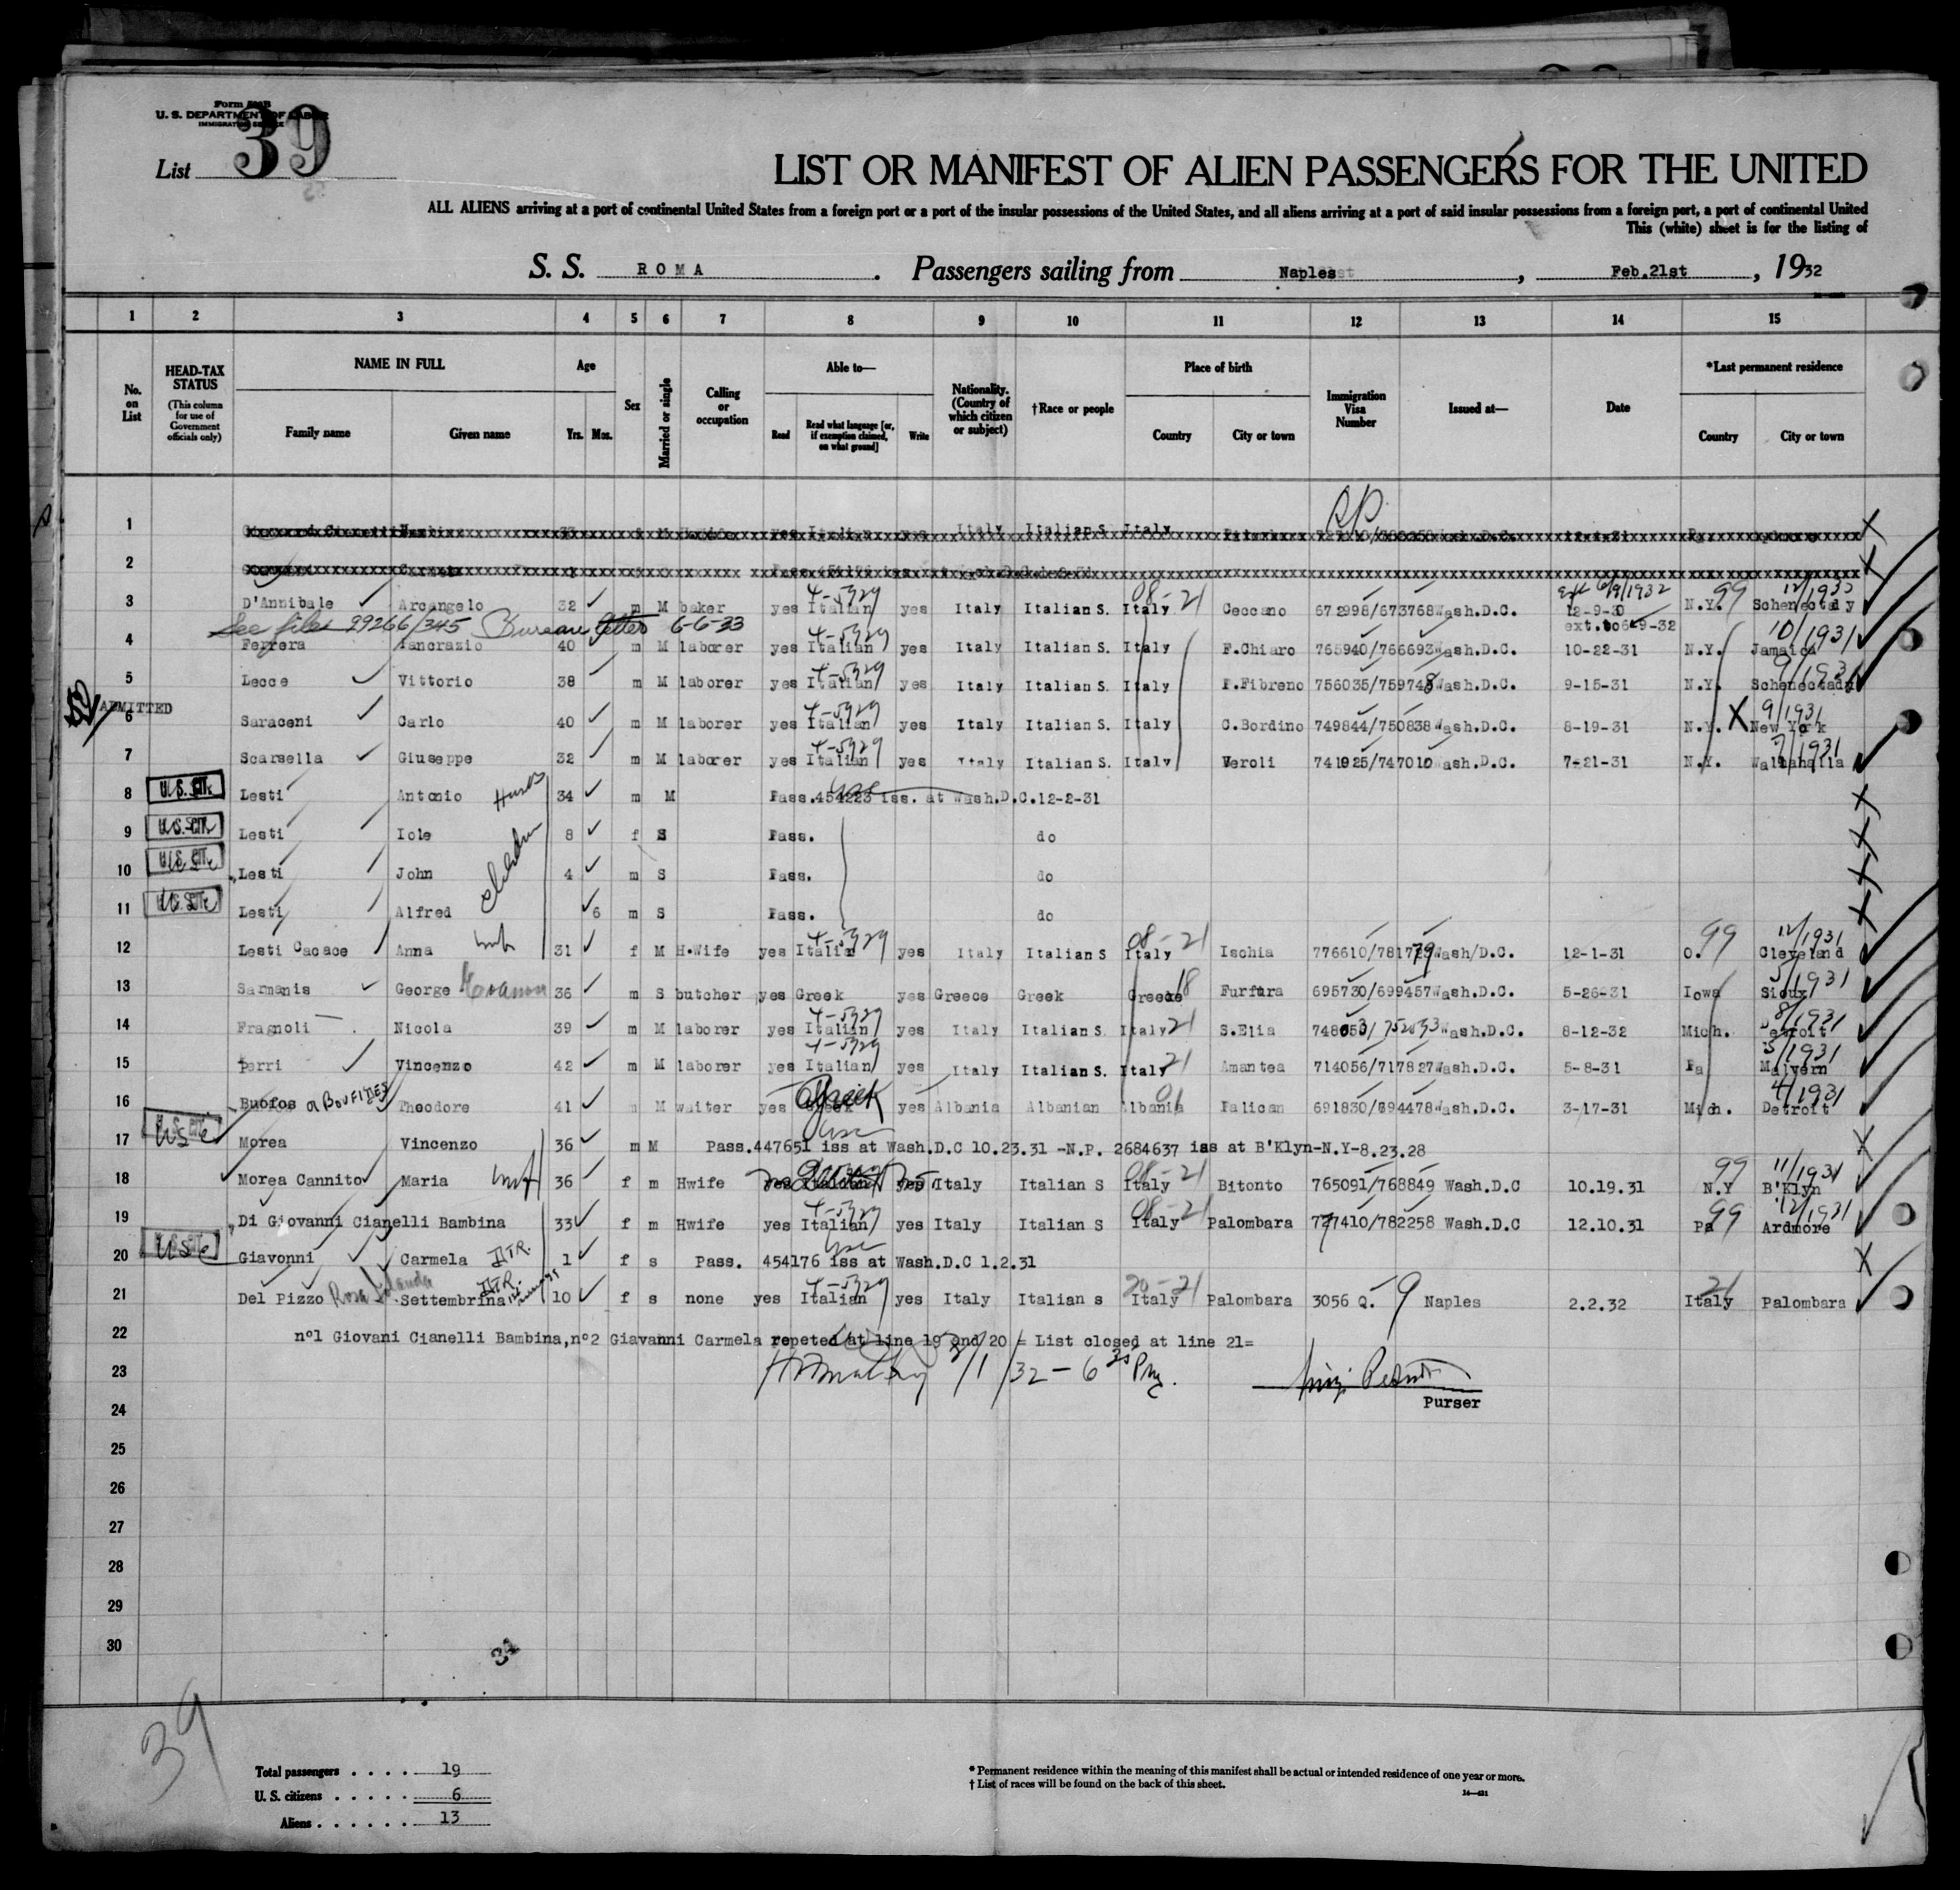 Form 500B
U. S. DEPARTMENT OF LABOR
IMMIGRATION SERVICE
List 39
LIST OR MANIFEST OF ALIEN PASSENGERS FOR THE UNITED
ALL ALIENS arriving at a port of continental United States from a foreign port or a port of the insular possessions of the United States, and all aliens arriving at a port of said insular possessions from a foreign port, a port of continental United
This (white) sheet is for the listing of
S. S. ROMA . Passengers sailing from Naples , Feb.21st , 1932
1 2 3 4 5 6 7 8 9 10 11 12 13 14 15
No. on List
HEAD-TAX STATUS (This column for use of Government officials only)
NAME IN FULL Family name Given name
Age Yrs. Mos.
Sex
Married or single
Calling or occupation
Able to— Read Read what language [or, if exemption claimed, on what ground] Write
Nationality. (Country of which citizen or subject)
†Race or people
Place of birth Country City or town
Immigration Visa Number
Issued at—
Date
*Last permanent residence Country City or town
1 Italy Italian S. Italy
2
3 D'Annibale Arcangelo 32 m M baker yes Italian yes Italy Italian S. Italy 08-21 Ceccano 672998/673768 Wash.D.C. 12-9-30 ext.to 6-9-32 N.Y. 99 Schenectady
See files 29266/345 Bureau letter 6-6-33
4 Ferrera Pancrazio 40 m M laborer yes Italian yes Italy Italian S. Italy F.Chiaro 765940/766693 Wash.D.C. 10-22-31 N.Y. Jamaica 10/1931
5 Lecce Vittorio 38 m M laborer yes Italian yes Italy Italian S. Italy F.Fibreno 756035/759748 Wash.D.C. 9-15-31 N.Y. Schenectady 9/1931
ADMITTED
6 Saraceni Carlo 40 m M laborer yes Italian yes Italy Italian S. Italy C.Bordino 749844/750838 Wash.D.C. 8-19-31 N.Y. X New York 9/1931
7 Scarsella Giuseppe 32 m M laborer yes Italian yes Italy Italian S. Italy Veroli 741925/747010 Wash.D.C. 7-21-31 N.Y. Walhahalla 7/1931
8 U.S. Cit. Lesti Antonio 34 m M Pass.454223 iss. at Wash.D.C.12-2-31
9 U.S. Cit. Lesti Iole 8 f S Pass. do
10 U.S. Cit. Lesti John children 4 m S Pass. do
11 U.S. Cit. Lesti Alfred 6 m S Pass. do
12 Lesti Cacace Anna wife 31 f M H.Wife yes Italian yes Italy Italian S Italy 08-21 Ischia 776610/781779 Wash/D.C. 12-1-31 O. 99 Cleveland 12/1931
13 Sarmanis George 36 m S butcher yes Greek yes Greece Greek Greece 18 Furfura 695730/699457 Wash.D.C. 5-26-31 Iowa Sioux 5/1931
14 Fragnoli Nicola 39 m M laborer yes Italian yes Italy Italian S. Italy 21 S.Elia 748653/752093 Wash.D.C. 8-12-32 Mich. Detroit 8/1931
15 Perri Vincenzo 42 m M laborer yes Italian yes Italy Italian S. Italy 21 Amantea 714056/717827 Wash.D.C. 5-8-31 Pa Malvern 5/1931
16 Buofos a BOUFIDES Theodore 41 m M waiter yes Greek yes Albania Albanian Albania 01 Palican 691830/694478 Wash.D.C. 3-17-31 Mich. Detroit 4/1931
17 USC Morea Vincenzo 36 m M Pass.447651 iss at Wash.D.C 10.23.31 -N.P. 2684637 iss at B'Klyn-N.Y-8.23.28
18 Morea Cannito Maria wife 36 f m Hwife Italy Italian S Italy 08-21 Bitonto 765091/768849 Wash.D.C 10.19.31 99 N.Y B'Klyn 11/1931
19 Di Giovanni Cianelli Bambina 33 f m Hwife yes Italian yes Italy Italian S Italy 08-21 Palombara 777410/782258 Wash.D.C 12.10.31 Pa 99 Ardmore 12/1931
20 USC Giavonni Carmela 1 f s Pass. 454176 iss at Wash.D.C 1.2.31
21 Del Pizzo Rosa Iolanda Settembrina 10 f s none yes Italian yes Italy Italian s Italy 20-21 Palombara 3056 Q. 9 Naples 2.2.32 21 Italy Palombara
22 n°1 Giovani Cianelli Bambina,n°2 Giavanni Carmela repeted at line 19 and 20 = List closed at line 21=
23 3/1/32 - 6 30 PM.
Purser
24
25
26
27
28
29
30
39
Total passengers . . . . 19
U. S. citizens . . . . . 6
Aliens . . . . . . 13
* Permanent residence within the meaning of this manifest shall be actual or intended residence of one year or more.
† List of races will be found on the back of this sheet.